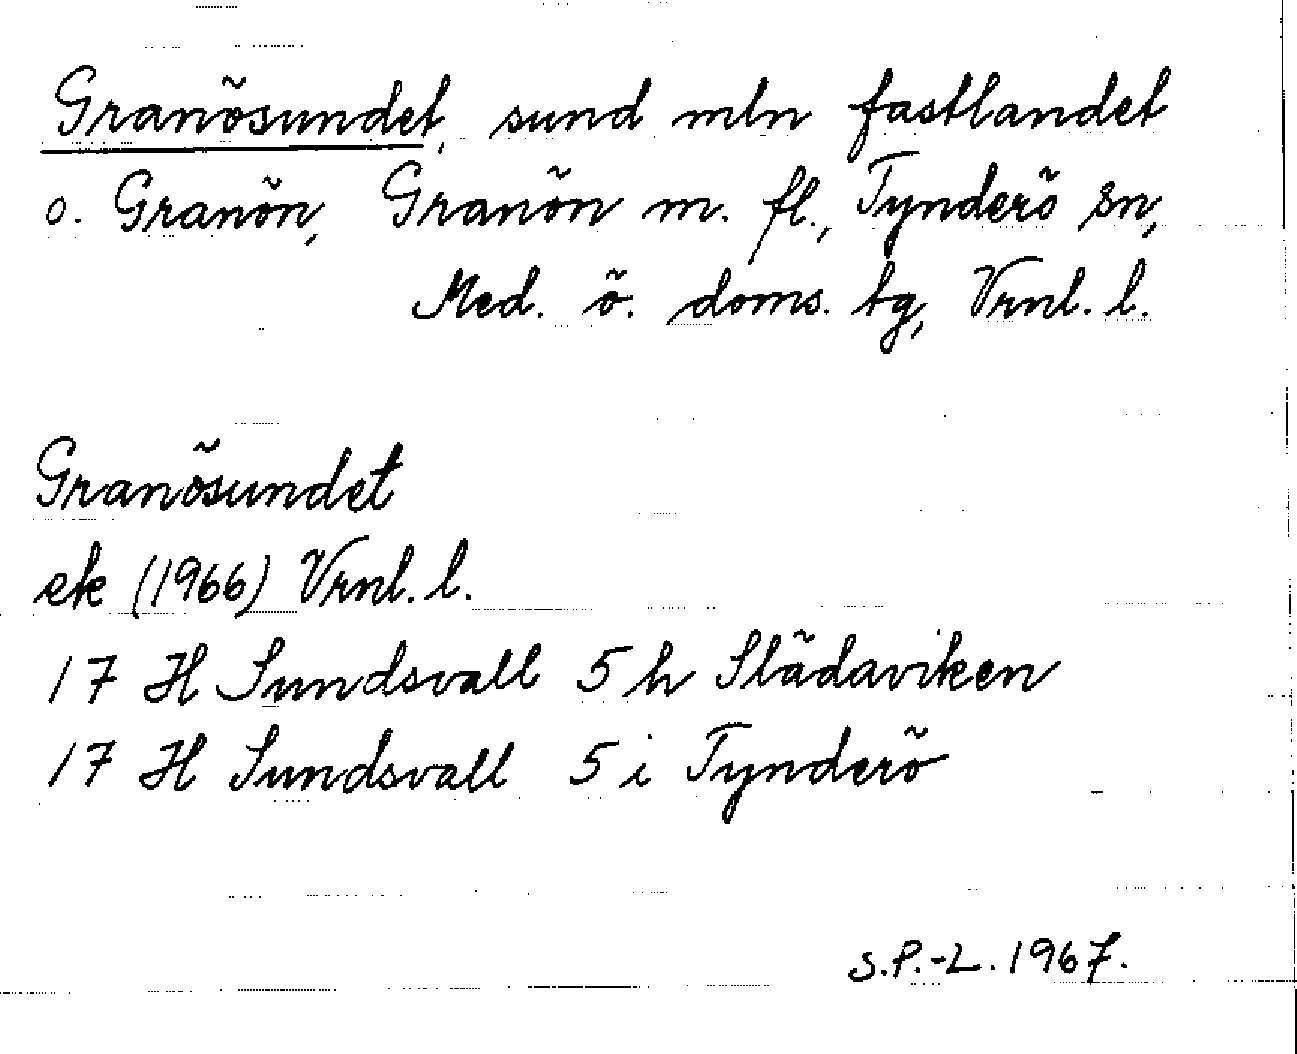 Granösundet, sund mln fastlandet
o. Granön, Granön m. fl., Tynderö sn,
Med. ö. doms. tg, Vrnl. l.
Granösundet
ek (1966) Vrnl. l.
17 H Sundsvall 5 h Slädaviken
17 H Sundsvall 5 i Tynderö
S.P.-L. 1967.